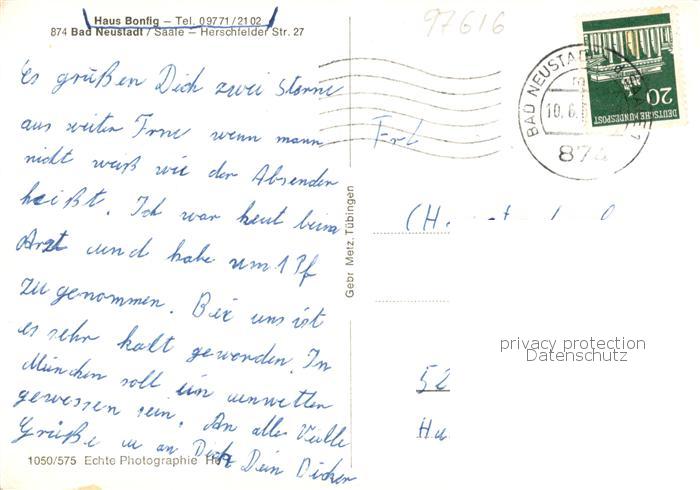 Haus Bonfig – Tel. 09771/2102
874 Bad Neustadt / Saale – Herschfelder Str. 27
97616
Es grüßen Dich zwei Störne
aus weiter Frne wenn mann
nicht weiß wie der Absender
heißt. Ich war heut beim
Arzt und habe um 1 Pf
zugenommen. Bei uns ist
es sehr kalt geworden. In
München soll ein unwetter
gewessen sein. An alle Viele
Grüße u an Dich Dein Dicker
1050/575 Echte Photographie
Gebr. Metz, Tübingen
BAD NEUSTADT
10.6.
874
20
DEUTSCHE BUNDESPOST
Frl
(H
52
Hu
privacy protection
Datenschutz